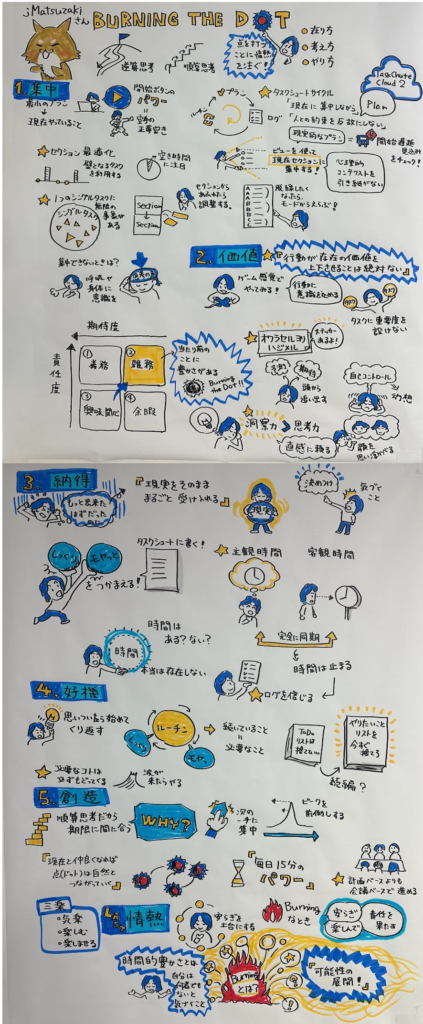 jMatsuzaki
さん
BURNING THE DOT
逆算思考
順算思考
点を打つ
ことに情熱
を注ぐ!
在り方
考え方
やり方
TaskChute
Cloud 2
1. 集中
最小のプラン
→
現在やっていること
開始ボタンの
パワー
プラン
ルーチン
ログ
タスクシュートサイクル
「現在に集中しながら
「人との約束を反故にしない」
Plan
現実的なプラン
開始遅延
見込みを
チェック!
セクション最適化
壁となるタスク
を利用する
空き時間
に注目
ビューを使って
現在セクションに
集中する!
心理的
コンテクストを
引き継がない
1つのシングルタスクに
無限の
事象が
ある
シングルタスク
Section
Section
セクションから
あふれたら
調整する。
脱線したく
なったら
モードからえらぶ!
集中できないときは?
呼吸や
身体に
意識を
2. 価値
『行動が存在の価値を
上下させることは絶対ない』
ゲーム感覚で
やってみる!
行動に
意識を
タスク
タスク
タスクに重要度を
設けない
期待度
責任度
① 義務
② 雑務
③ 興味関心
④ 余暇
当たり前の
ことに
豊かさがある
Burning
the Dot!!
オワラセルヨリ
ハジメル
ステッカー
あるよ!
予測
期待
頭から
追い出す
自己コントロール
幻想
洞察力 > 思考力
直感に頼る
顔を
思い浮かべる
3. 納得
もっと出来た
はずだった
『現実をそのまま
まるごと 受け入れる』
現実
決めつけ
気づく
こと
しっくり
モヤッと
をつかまえる!
タスクシュートに書く!
主観時間
客観時間
時間は
ある?ない?
時間
本当は存在しない
完全に同期
時間は止まる
ログを信じる
4. 好機
思いついたら始めて
くり返す
ルーチン
しっくり
モヤッ
続いていること
=
必要なこと
ToDo
リストは
捨てない
やりたいこと
リストを
今すぐ
捨てろ
続編?
必要なコトは
必ずもどってくる
波が
来たらやる
5. 創造
順算思考だから
期限に間に合う
WHY?
次の
一手に
集中
ピークを
前倒しする
『現在と仲良くなれば
点(ドット)は自然と
つながっていく』
毎日15分の
パワー
計画ベースよりも
会議ベースで進める
三楽
・気楽
・楽しむ
・楽しませる
情熱
安らぎを
土台にする
Burning
なとき
安らぎ
楽しんで
責任を
果たす
時間的豊かさとは
自分は
何者でも
ないと
気づくこと
Burning
とは?
『可能性の
展開!』